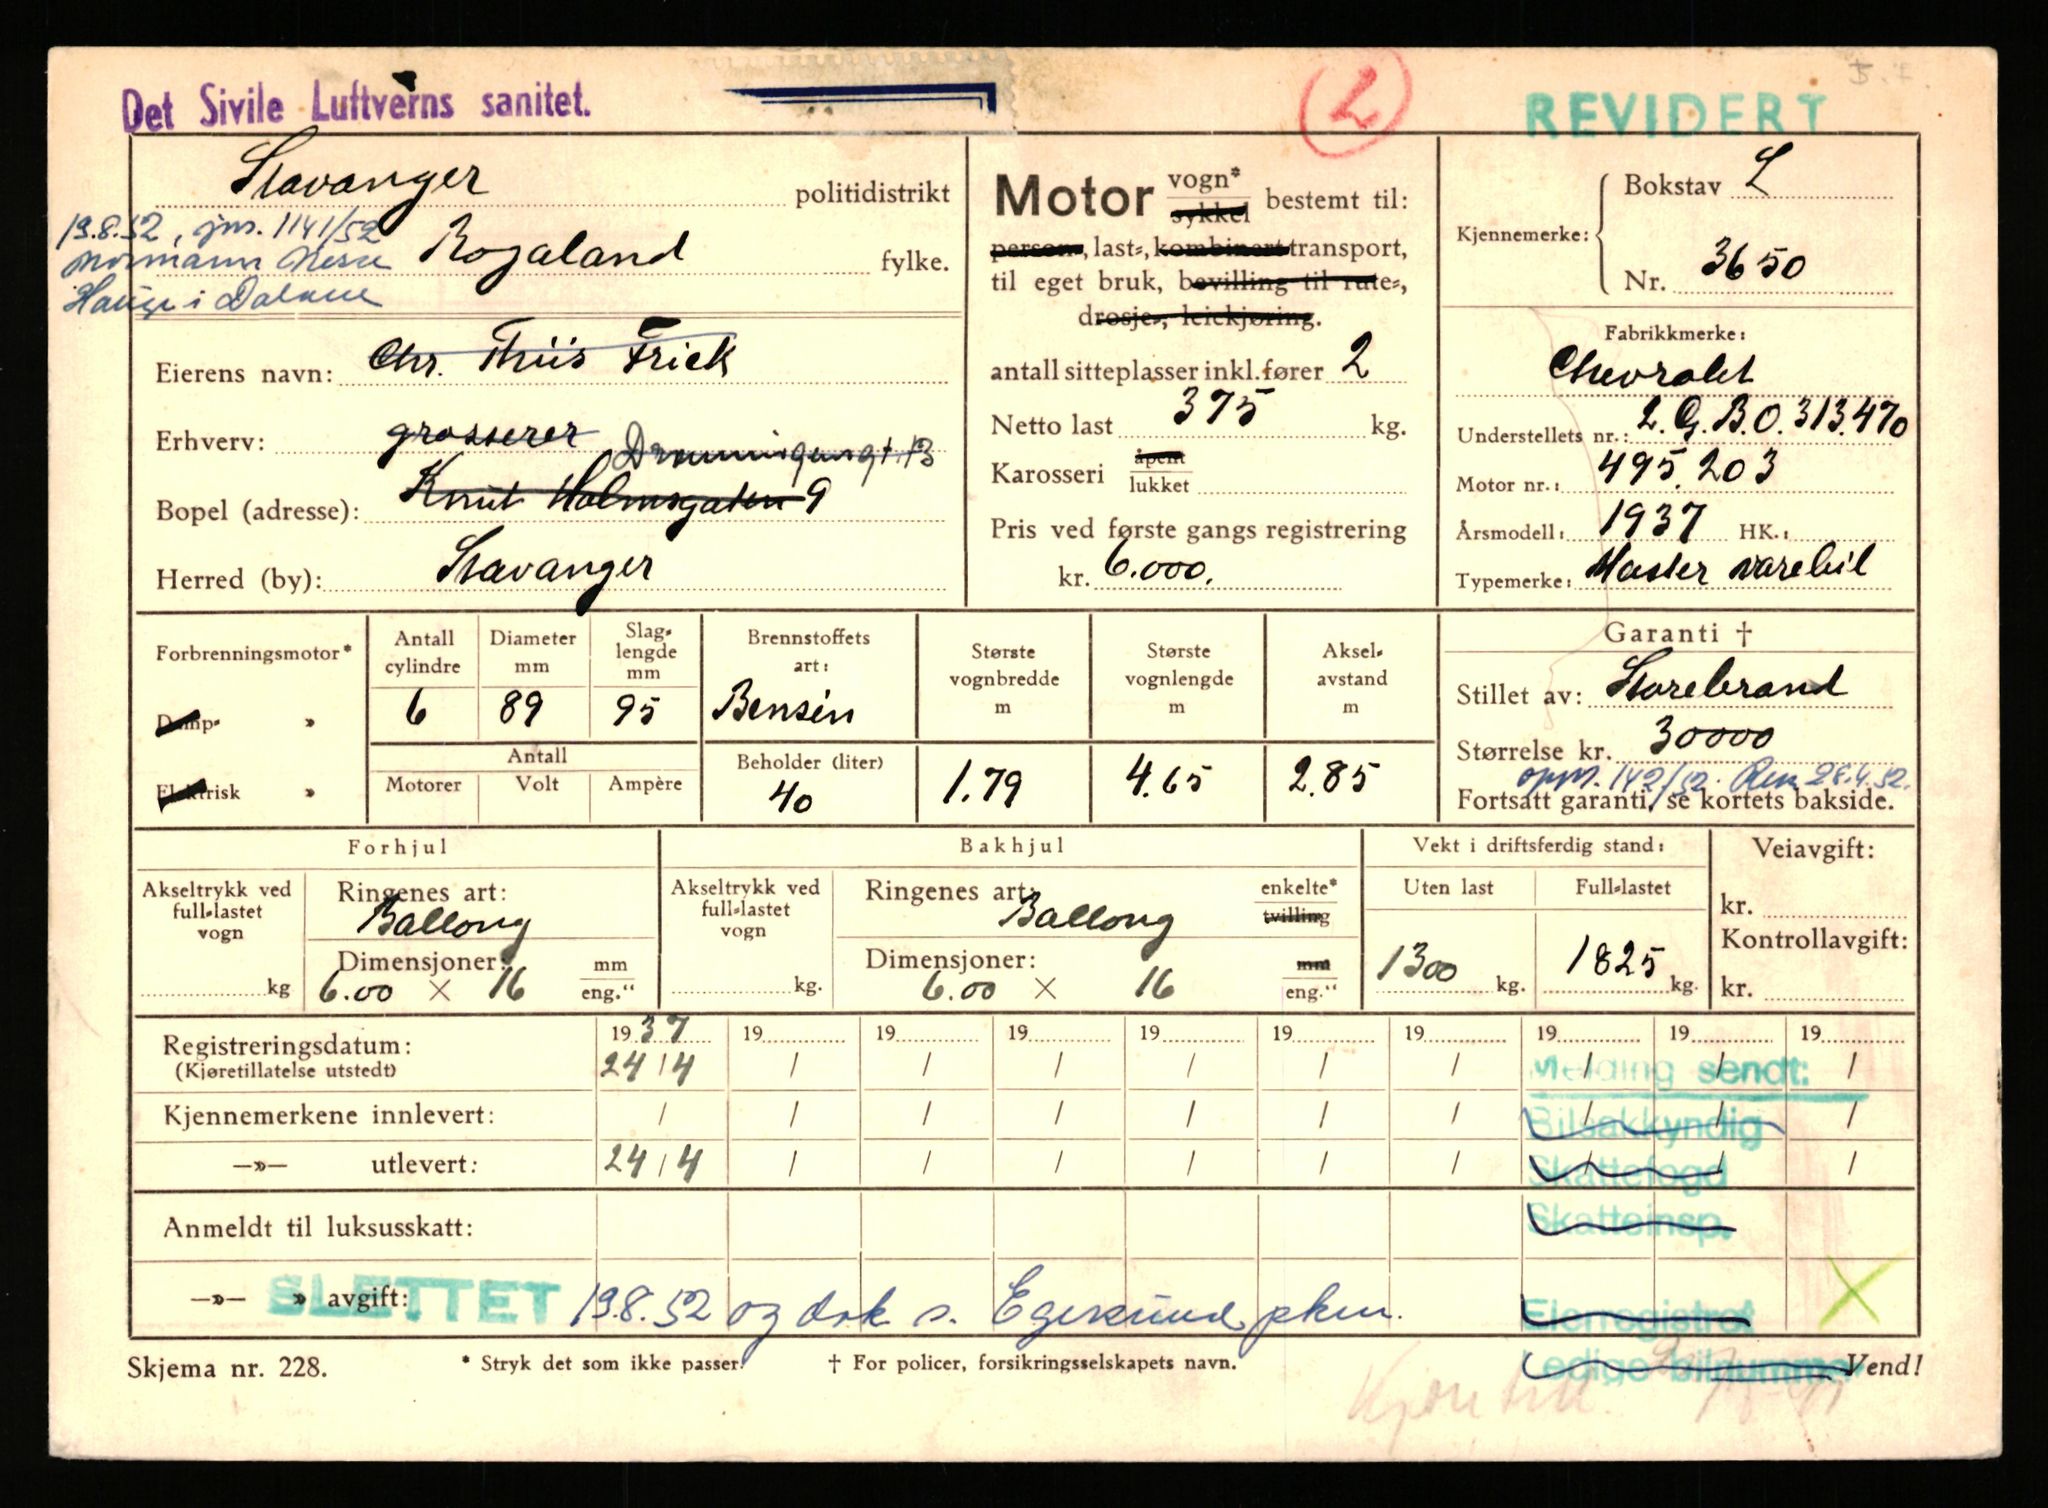 Det Sivile Luftverns sanitet.
2
REVIDERT
Stavanger politidistrikt
19.8.52, jnr. 1141/52
Normann Nesse
Hauge i Dalane
Rogaland fylke.
Eierens navn: Chr. Thiis Frick
Erhverv: grosserer
Dronningensgt. 13
Bopel (adresse): Knut Holmsgaten 9
Herred (by): Stavanger
Motor vogn* sykkel bestemt til:
person-, last-, kombinert transport,
til eget bruk, bevilling til rute-,
drosje-, leiekjøring.
antall sitteplasser inkl. fører 2
Netto last 375 kg.
Karosseri åpent lukket
Pris ved første gangs registrering
kr. 6.000.
Kjennemerke: Bokstav L
Nr. 3650
Fabrikkmerke:
Chevrolet
Understellets nr.: 2.G.B.O.313.470
Motor nr.: 495.203
Årsmodell: 1937 HK.:
Typemerke: Master varebil
Forbrenningsmotor*
Damp- »
Elektrisk »
Antall cylindre 6
Diameter mm 89
Slaglengde mm 95
Antall
Motorer Volt Ampère
Brennstoffets art: Bensin
Beholder (liter) 40
Største vognbredde m 1.79
Største vognlengde m 4.65
Akselavstand m 2.85
Garanti †
Stillet av: Storebrand
Størrelse kr. 30000
142/52 28.4.52.
Fortsatt garanti, se kortets bakside.
Forhjul
Akseltrykk ved full-lastet vogn kg
Ringenes art: Ballong
Dimensjoner: mm
6.00 × 16 eng."
Bakhjul
Akseltrykk ved full-lastet vogn kg.
Ringenes art: Ballong enkelte* tvilling
Dimensjoner: mm
6.00 × 16 eng."
Vekt i driftsferdig stand:
Uten last 1300 kg.
Full-lastet 1825 kg.
Veiavgift:
kr.
Kontrollavgift:
kr.
Registreringsdatum: 1937 19 19 19 19 19 19 19 19 19
(Kjøretillatelse utstedt) 24/4 / / / / / / / / /
Melding sendt:
Kjennemerkene innlevert: / / / / / / / / / /
Bilsakkyndig
—»— utlevert: 24/4 / / / / / / / / /
Skattefogd
Anmeldt til luksusskatt:
Skatteinsp.
—»— » avgift:
SLETTET 19.8.52 og dok s. Egersund pkm.
Eierregistret
Ledige bilnummer
Skjema nr. 228.
* Stryk det som ikke passer.
† For policer, forsikringsselskapets navn.
Vend!